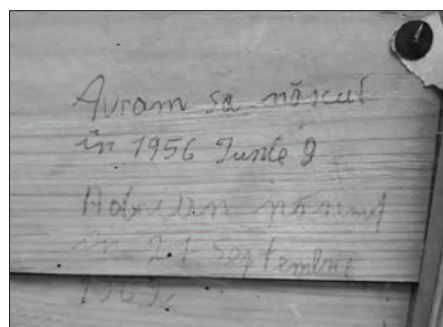 Avram sa născut
în 1956 Iunie 9
născut
în 21 Septembrie